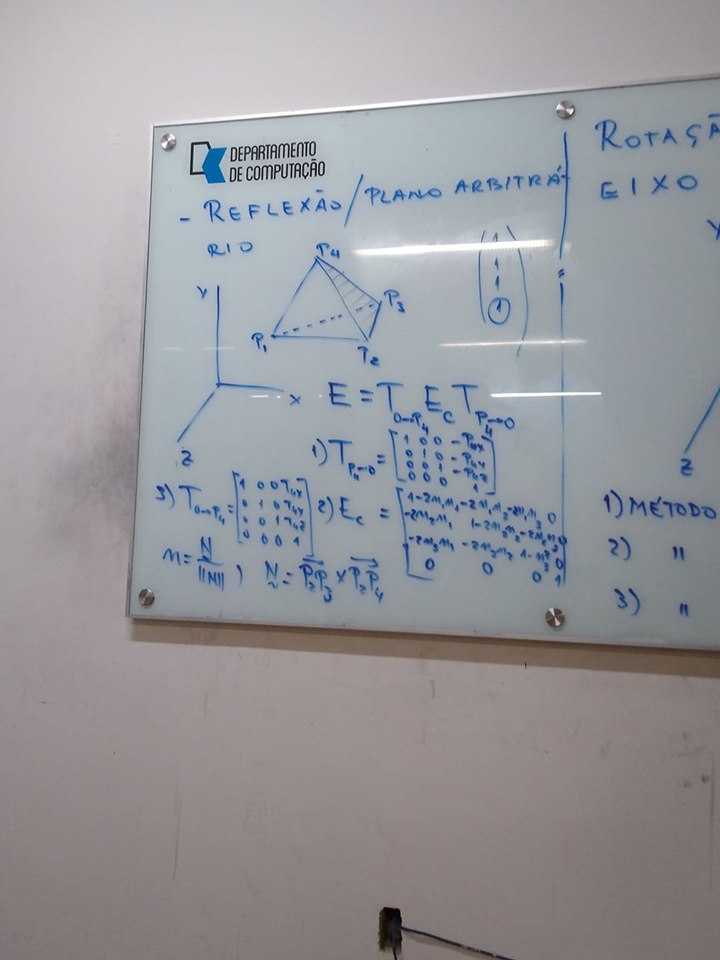 DEPARTAMENTO
DE COMPUTAÇÃO
- REFLEXÃO / PLANO ARBITRÁ-
RIO
Y
X
Z
P4
P1
P3
P2
1
1
1
1
E = T0→P4 EC TP4→0
1) TP4→0 =
1 0 0 -P4X
0 1 0 -P4Y
0 0 1 -P4Z
0 0 0 1
3) T0→P4 =
1 0 0 P4X
0 1 0 P4Y
0 0 1 P4Z
0 0 0 1
2) EC =
1-2n1n1 -2n1n2 -2n1n3 0
-2n2n1 1-2n2n2 -2n2n3 0
-2n3n1 -2n3n2
0 0 0 1
n = N / ||N|| ) N = P2P3 × P2P4
ROTAÇÃ
EIXO
Y
Z
1) MÉTODO
2) "
3) "